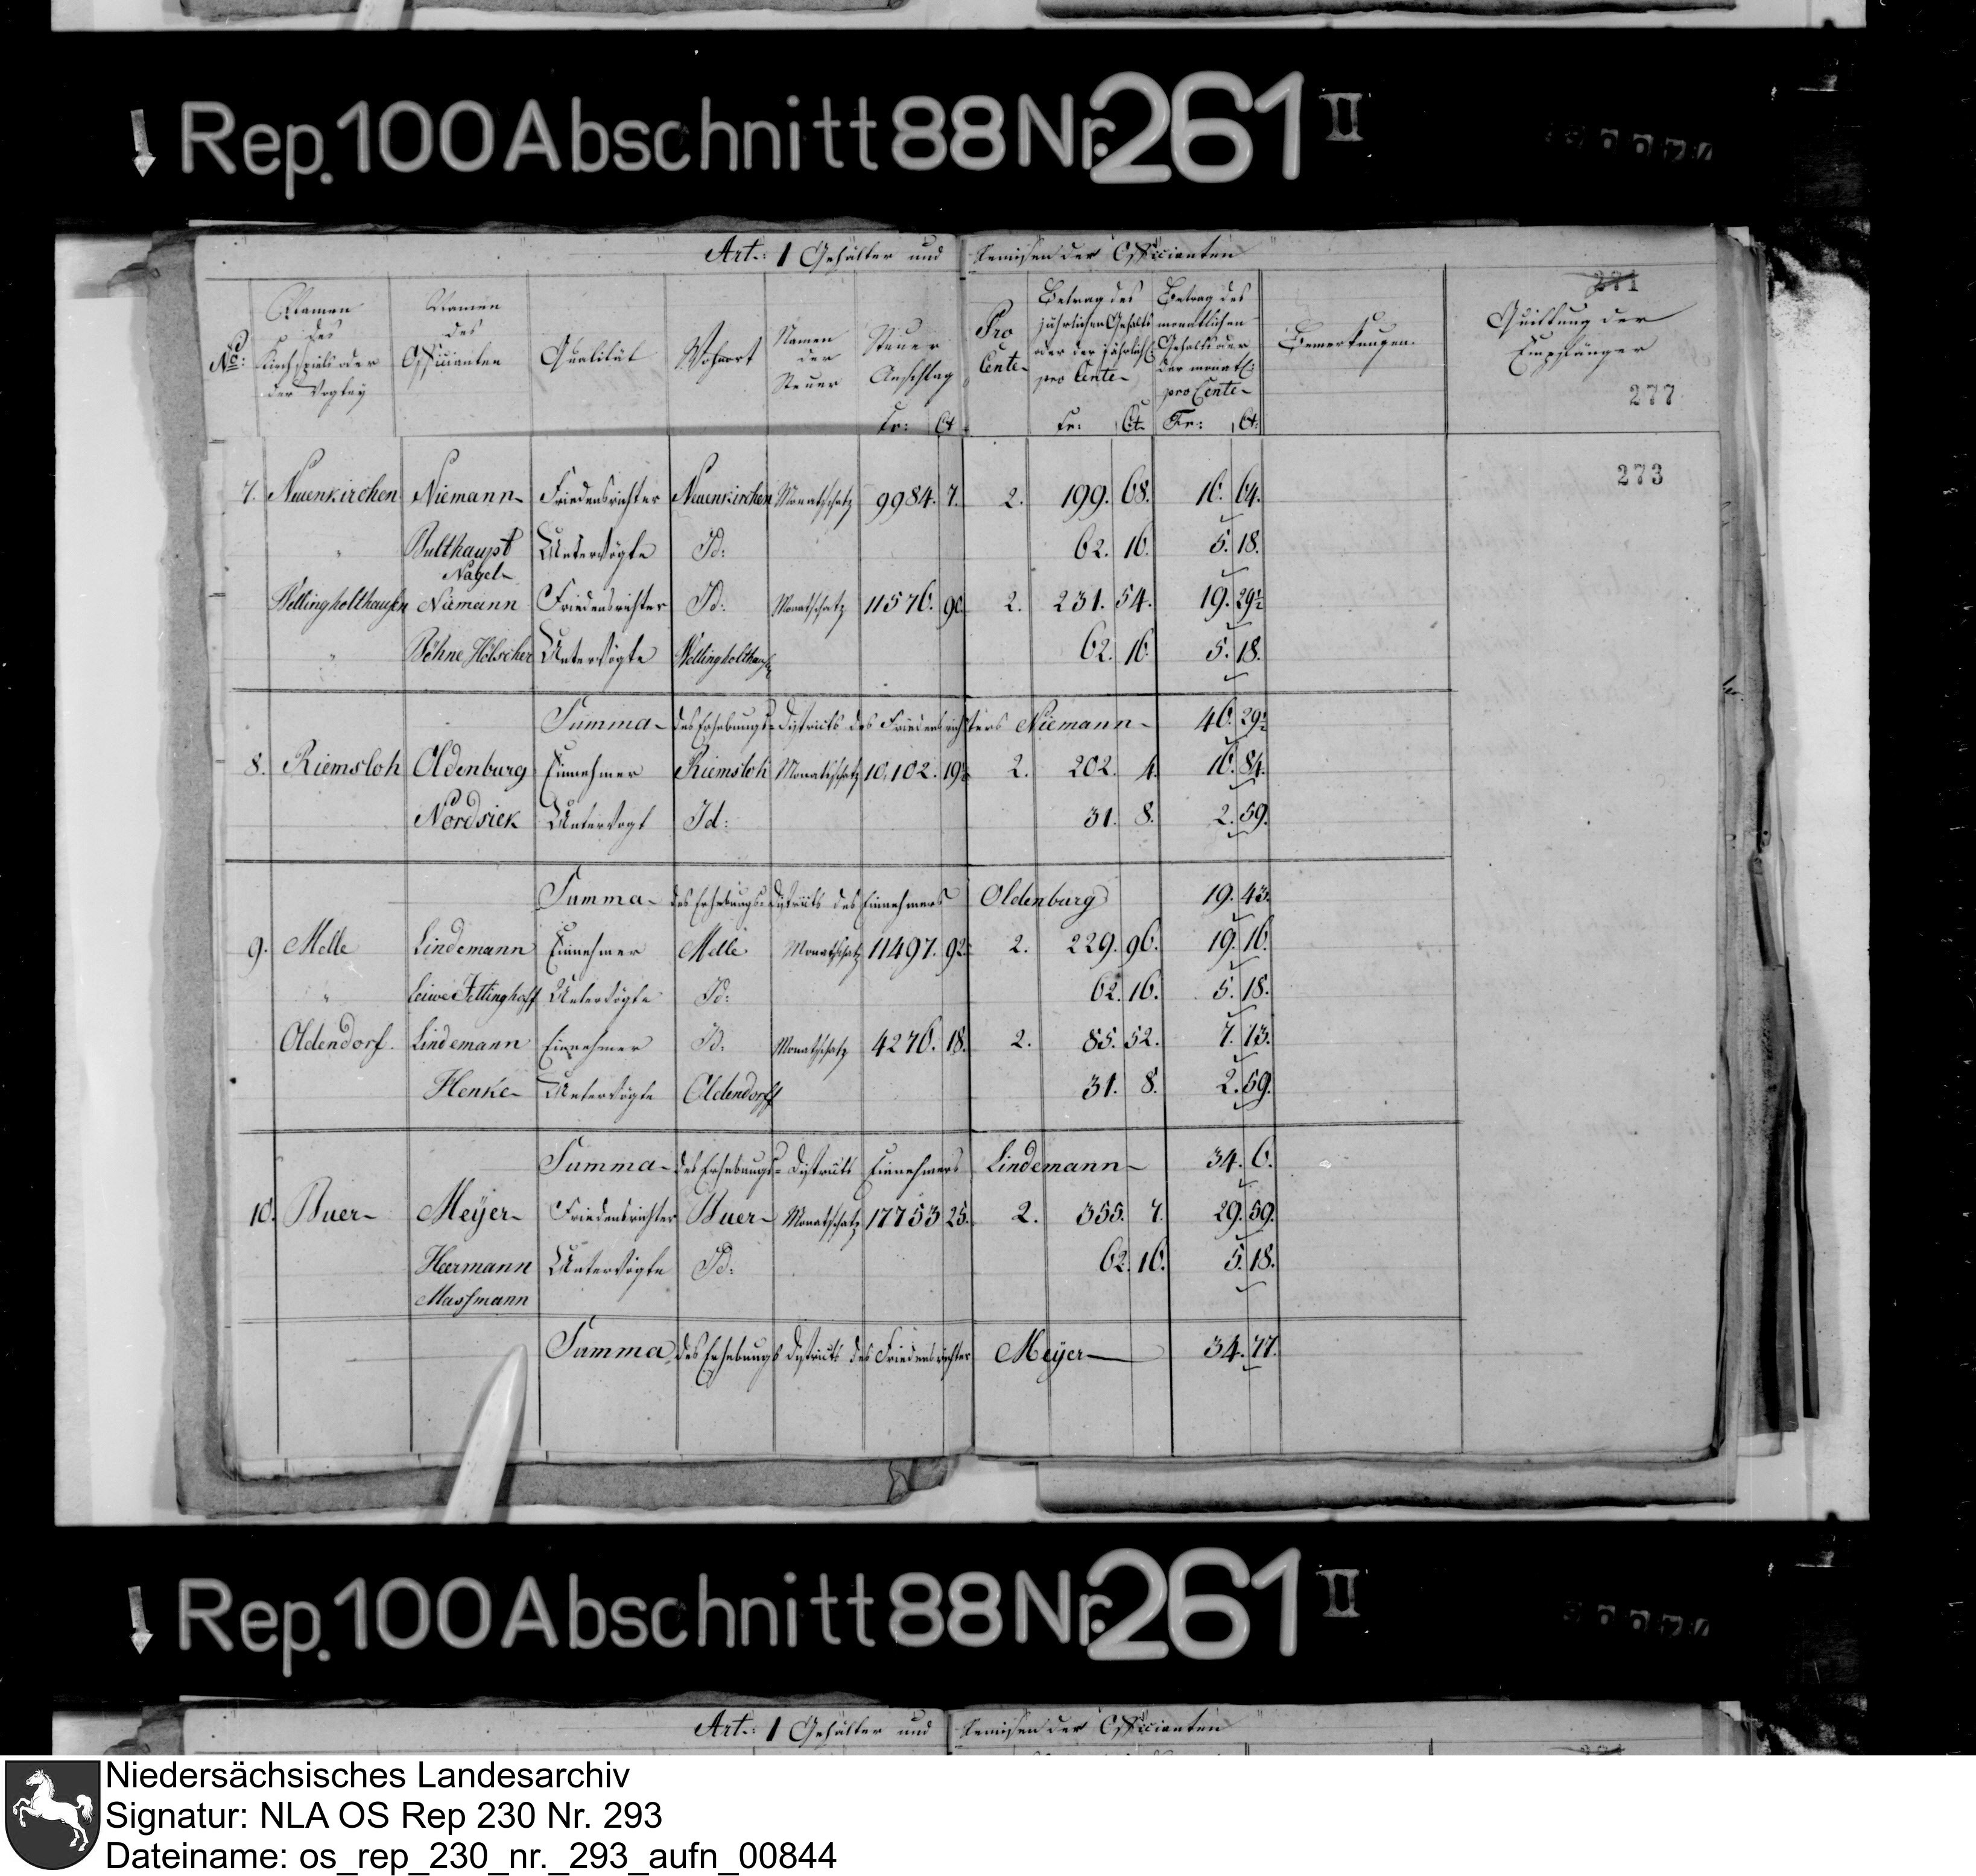 Rep. 100 Abschnitt 88 Nr. 261 II
Art. 1 Gehälter und Remisen der Officianten
271
No: Namen des Kirchspiels oder der Vogtey Namen des Officianten Qualität Wohnort Namen der Steuer Steuer Anschlag Fr: Ct Pro Cente Betrag des jährlichen Gehalts oder der jährlich: pro Cente Fr: Ct. Betrag des monatlichen Gehalts oder der monatl: pro Cente Fr: Ct: Bemerkungen. Quittung der Empfänger
277
273
7. Neuenkirchen Niemann Friedensrichter Neuenkirchen Monatschatz 9984. 7. 2. 199. 68. 16. 64.
" Bulthaupt Untervögte Id: 62. 16. 5. 18.
Nagel
Wellingholthausen Niemann Friedensrichter Id: Monatschatz 11576. 90. 2. 231. 54. 19. 29½
" Böhne Hölscher Untervögte Wellingholthausen 62. 16. 5. 18.
Summa des Erhebungs-Districts des Friedensrichters Niemann 46. 29½
8. Riemsloh Oldenburg Einnehmer Riemsloh Monatschatz 10,102. 19½ 2. 202. 4. 16. 84.
Nordsiek Untervogt Id: 31. 8. 2. 59.
Summa des Erhebungs-Districts des Einnehmers Oldenburg 19. 43.
9. Melle Lindemann Einnehmer Melle Monatschatz 11497. 92. 2. 229. 96. 19. 16.
" Untervögte Id: 62. 16. 5. 18.
Oldendorf. Lindemann Einnehmer Id: Monatschatz 4276. 18. 2. 85. 52. 7. 13.
Henke Untervögte Oldendorff 31. 8. 2. 59.
Summa des Erhebungs-Districts Einnehmers Lindemann 34. 6.
10. Buer Meÿer Friedensrichter Buer Monatschatz 17753 25. 2. 355. 7. 29. 59.
Heermann Untervögte Id: 62. 16. 5. 18.
Massmann
Summa des Erhebungs Districts des Friedensrichter Meÿer 34. 77.
Rep. 100 Abschnitt 88 Nr. 261 II
Art. 1 Gehälter und Remisen der Officianten
Niedersächsisches Landesarchiv
Signatur: NLA OS Rep 230 Nr. 293
Dateiname: os_rep_230_nr._293_aufn_00844